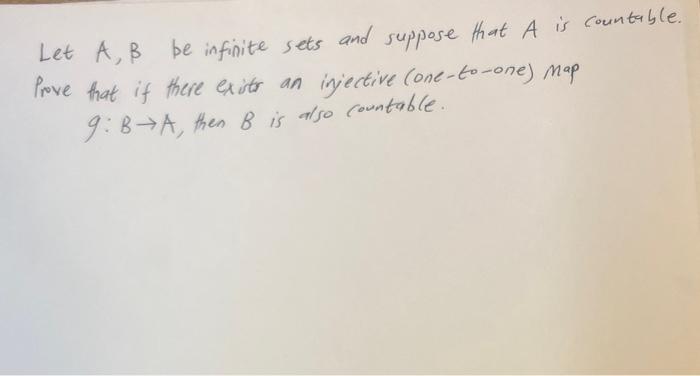 Let A, B be infinite sets and suppose that A is countable.
Prove that if there exists an injective (one-to-one) map
g: B→A, then B is also countable.